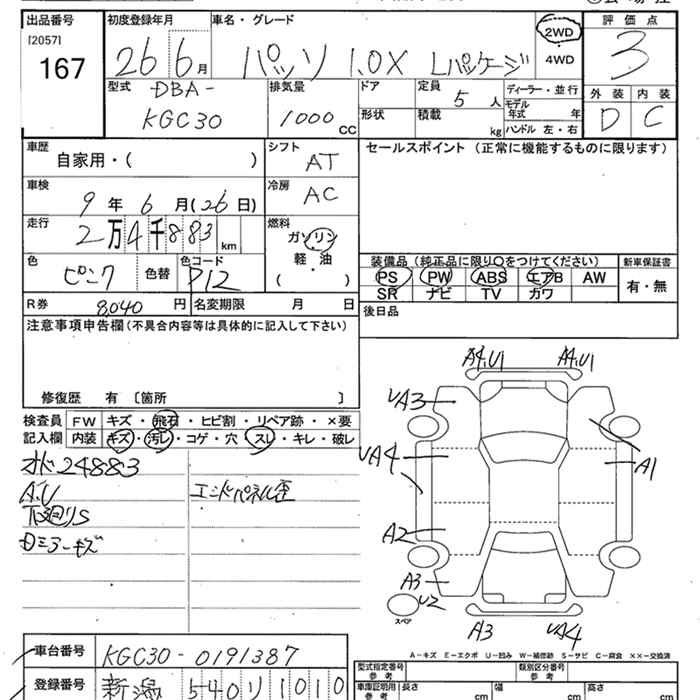 出品番号
[2057]
167
初度登録年月
26 6月
車名・グレード
パッソ 1.0X Lパッケージ
2WD
4WD
評価点
3
外装 内装
D C
型式
DBA-
KGC30
排気量
1000 CC
ドア
形状
定員
5 人
積載
kg
ディーラー・並行
モデル年式 年
ハンドル 左・右
車歴
自家用・( )
シフト
AT
セールスポイント (正常に機能するものに限ります)
車検
9年 6月(26日)
冷房
AC
走行
2万4千883 km
燃料
ガソリン
軽・油
・
( )
色
ピンク
色替
色コード
P12
装備品(純正品に限り○をつけてください)
新車保証書
PS PW ABS エアB AW
SR ナビ TV カワ
有・無
R券
8,040 円
名変期限 月 日
後日品
注意事項申告欄(不具合内容等は具体的に記入して下さい)
修復歴 有 〔箇所 〕
検査員
記入欄
FW キズ・飛石・ヒビ割・リペア跡・×要
内装 キズ・汚レ・コゲ・穴・スレ・キレ・破レ
オド24883
A.U
エンドパネル歪
下廻りS
Dミラーキズ
A4.U1
A4.U1
UA3
UA4
A1
A2
A3
U2
スペア
A3
UA4
A-キズ E-エクボ U-凹み W-補修跡 S-サビ C-腐食 ××-交換済
車台番号
KGC30-0191387
登録番号
新潟 540 リ 1010
型式指定番号
参考
類別区分番号
参考
車庫証明用
参考
長さ cm
幅 cm
高さ cm